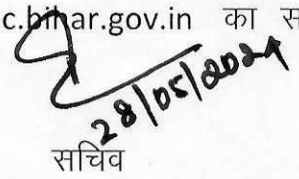 c.bihar.gov.in का स
28/05/2024
सचिव